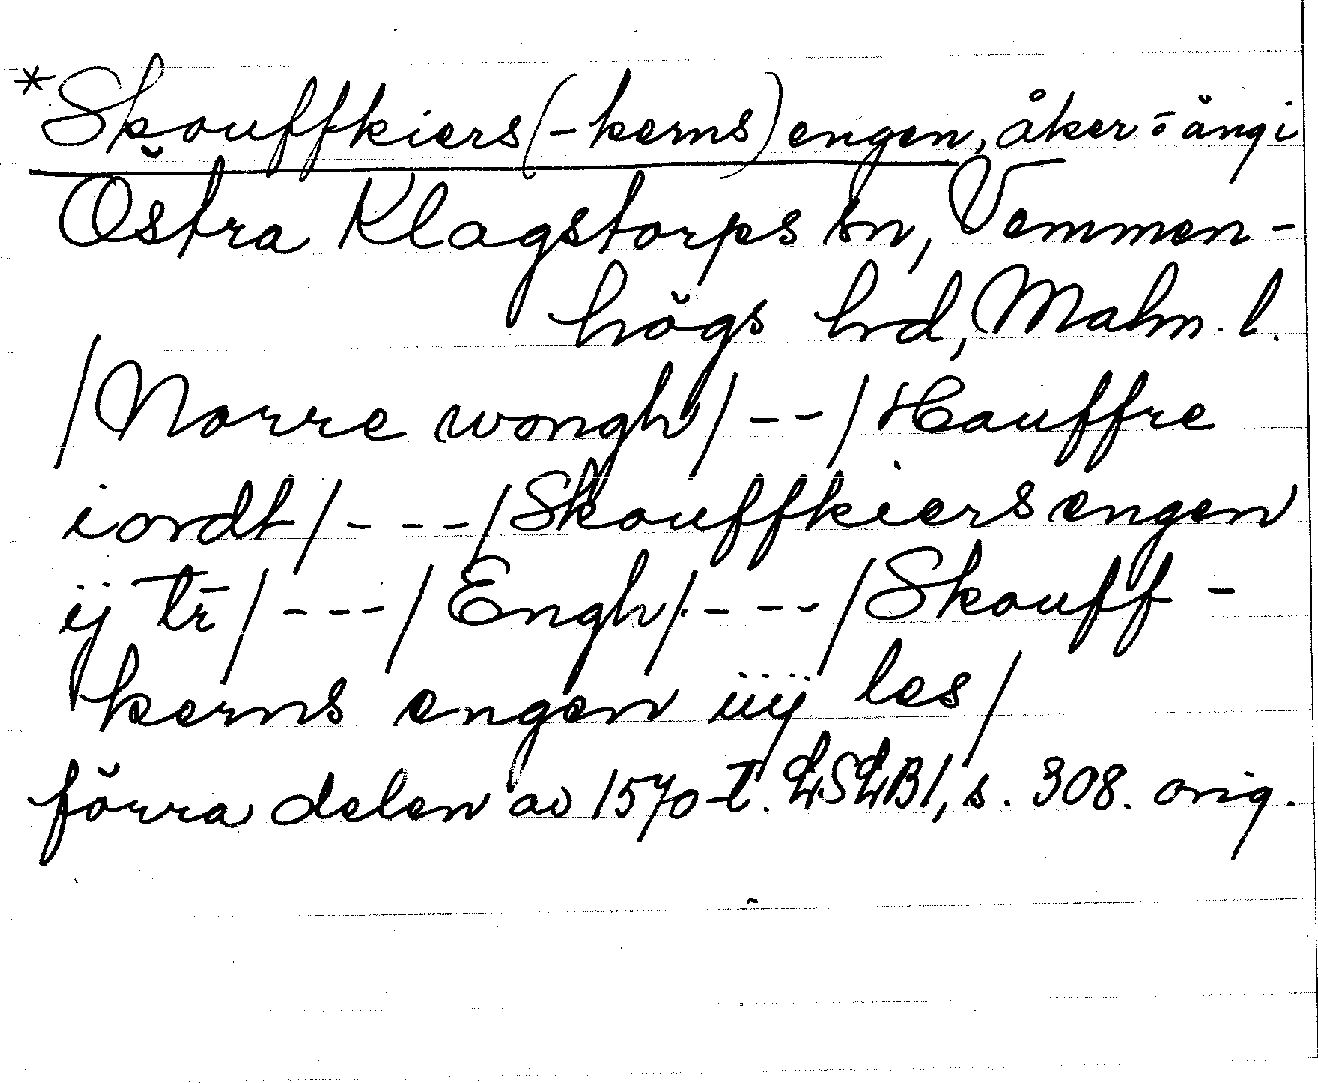 *Skouffkiers(-kerns)engen, åker o äng i
Östra Klagstorps sn, Vemmen-
högs hd, Malm. l.
/Norre wongh/--/Hauffre
iordt/---/Skouffkiersengen
ij tr̄/---/Engh/---/Skouff-
kerns engen iiij les/
förra delen av 1570-t. LSLB1, s. 308. orig.